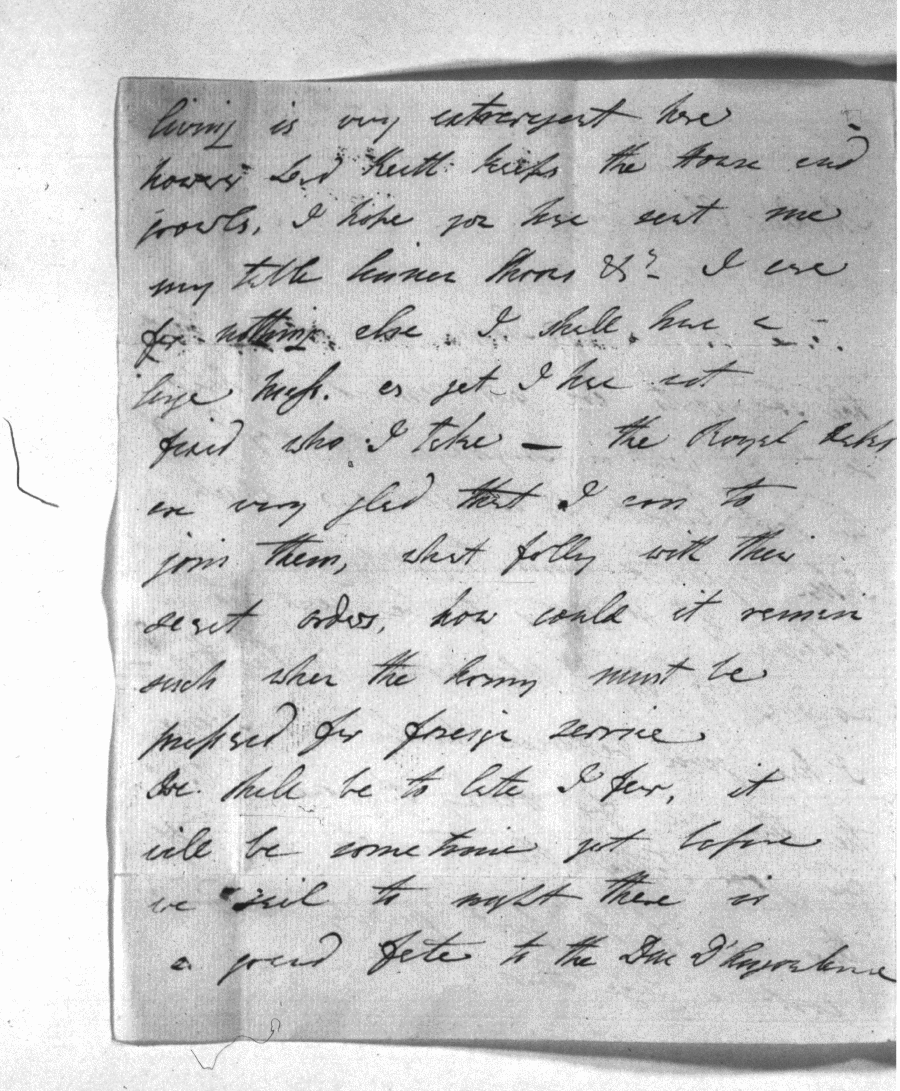 living is very extravagant here
however Lord Keith keeps the House and
growls, I hope you have sent me
my table linnen Spoons &c. I care
for nothing else I shall have a
large Mess. as yet I have not
fixed who I take — the Royal
are very glad that I am to
join them, what folly with their
secret orders, how could it remain
such when the must be
prepared for foreign service
We shall be to late I fear, it
will be some time yet before
we sail to night there is
a grand fete to the Duc D'Angouleme